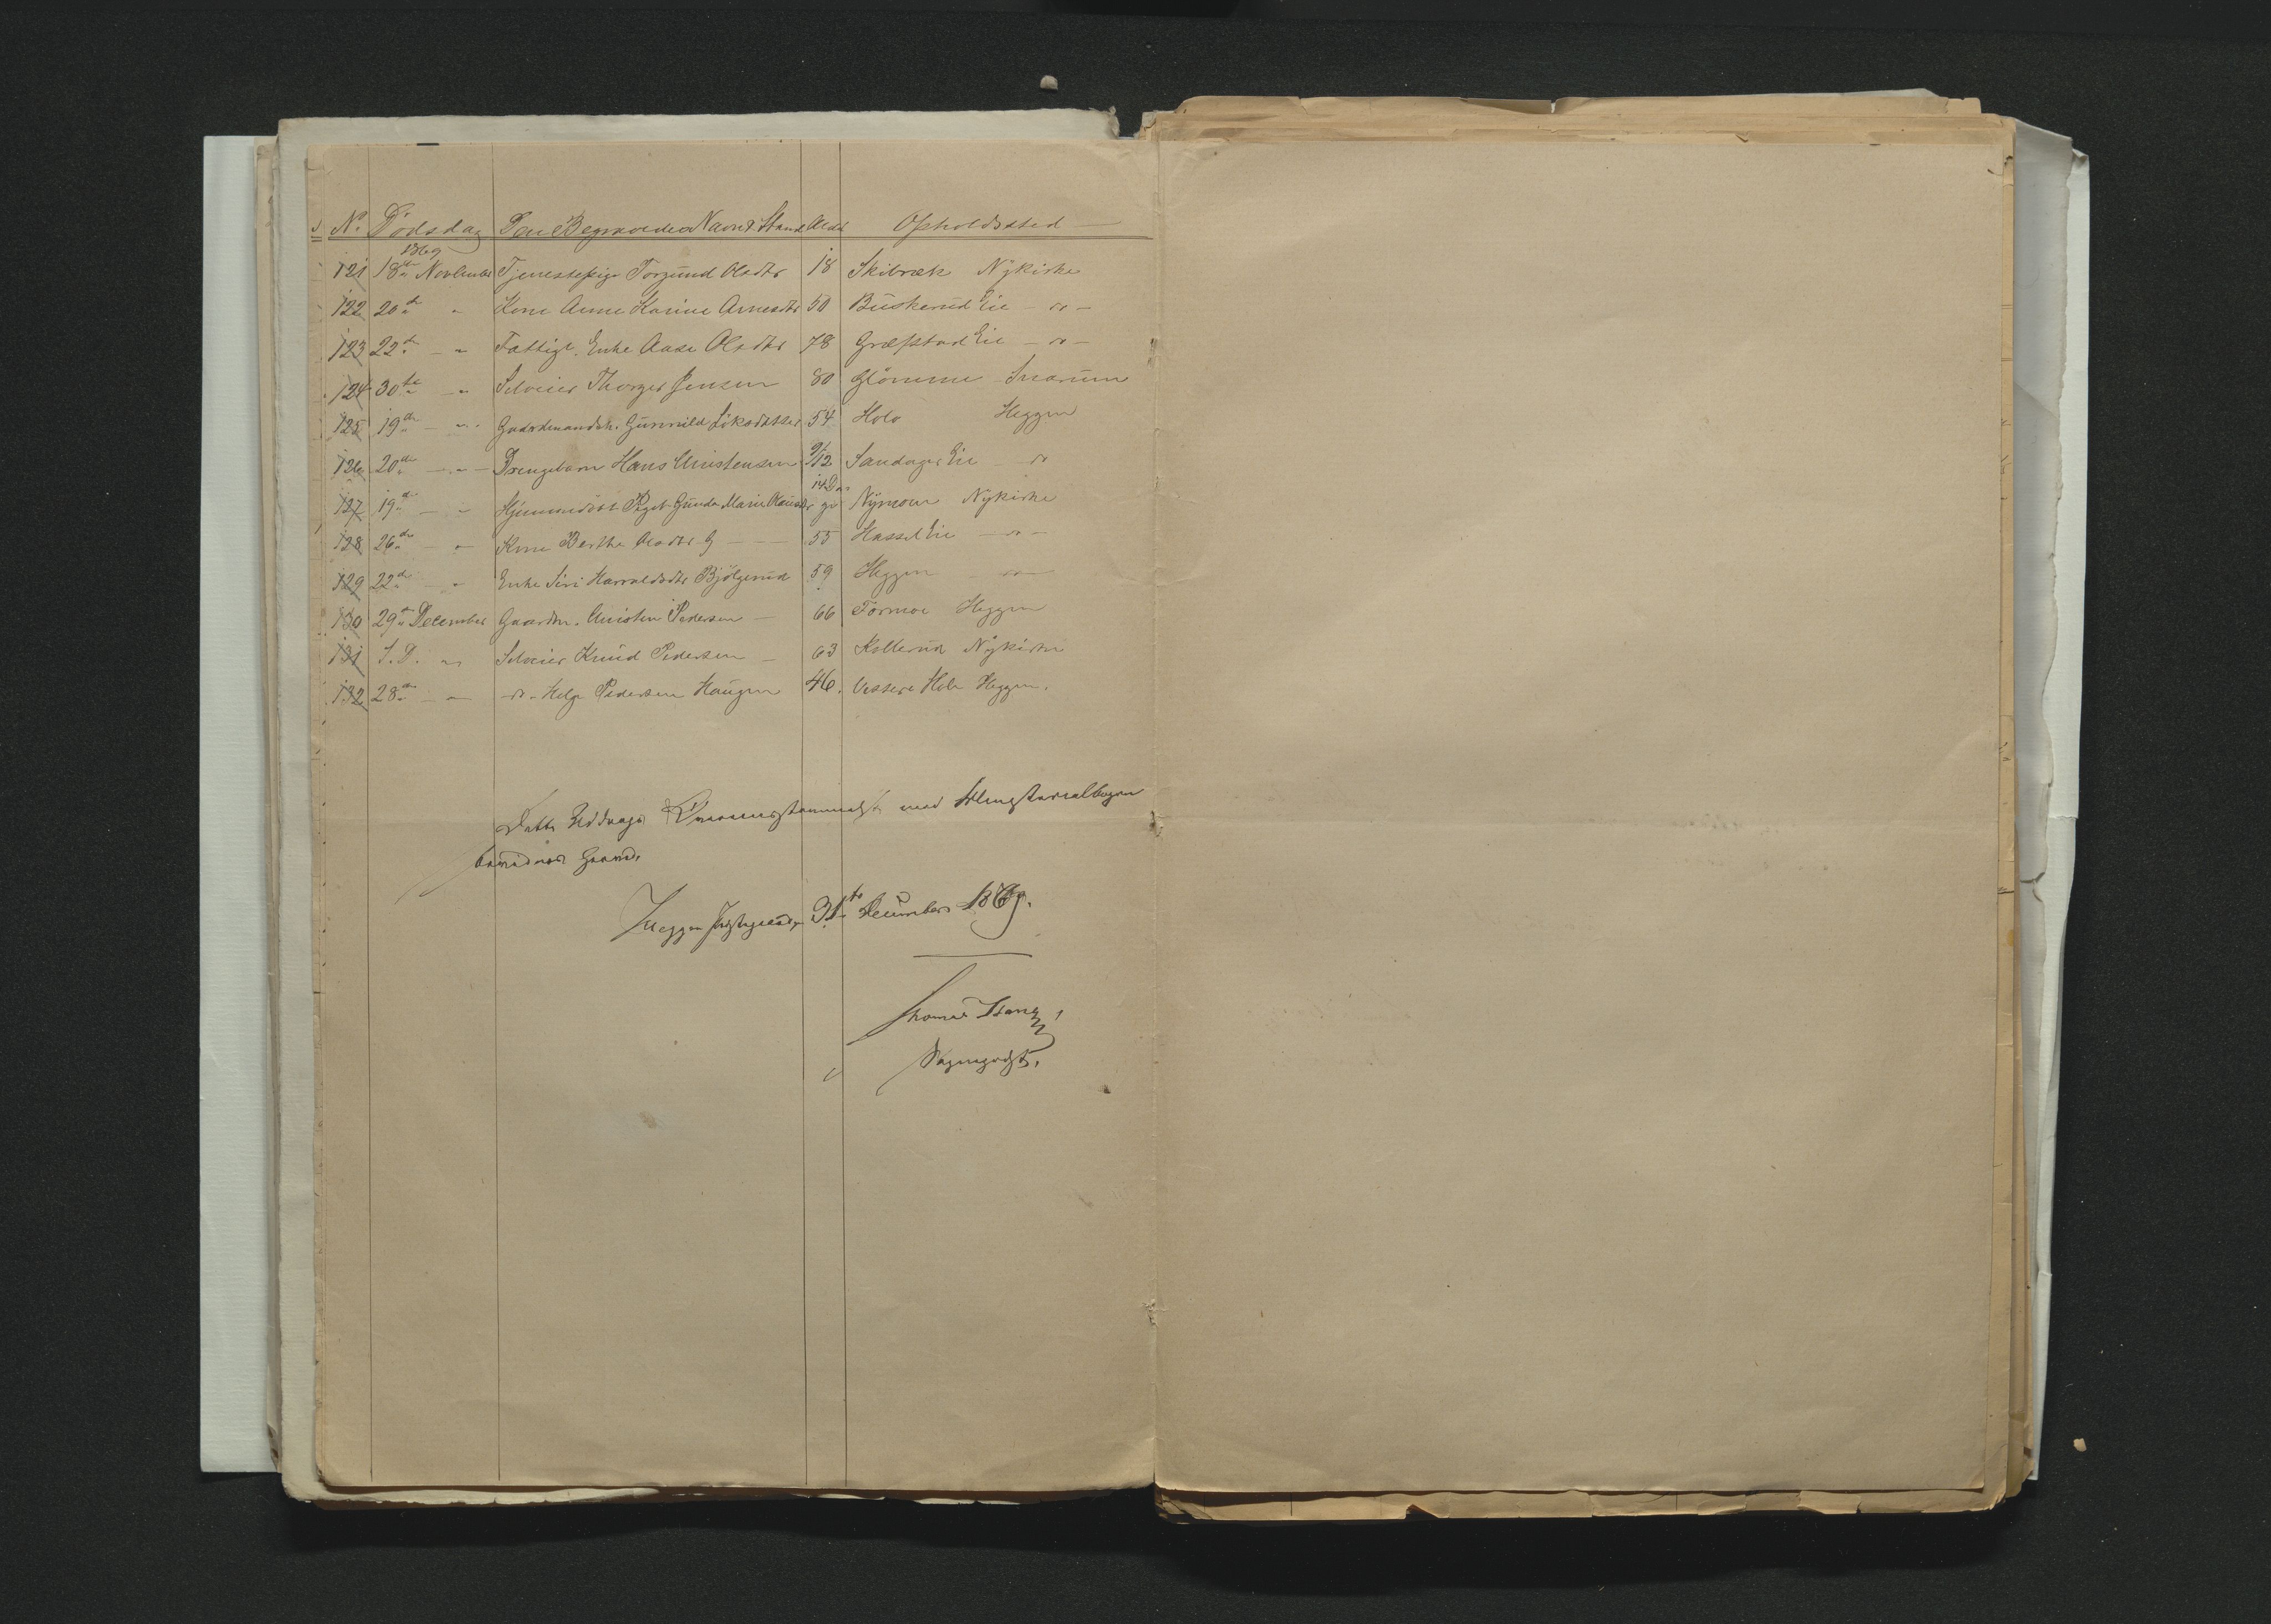 No Dödsdag Den Begravedes Navn & Stand Alder Opholdssted
1869
121 18de November Tjenestepige Torgund Olsdtr 18 Skibræk Nykirke
122 20de " Kone Anne Karine Arnesdtr 50 Buskerud Eie - do -
123 22de - " Fattigl. Enke Aase Olsdtr 78 Græfstad Eie - do -
124 30te - " Selveier Thorger Jensen 80 Glömme Snarum
125 19de - " - Gaardmandsk. Gunnild 54 Holo Heggen
126 20de - " - Drengebarn Hans Christensen 9/12 Sandager Eie - do
14 Da-
127 19de - " Hjemmedöbt Pigeb. Gunda Marie ge Nymoen Nykirke
128 26de - " Kone Berthe Olsdtr - - 55 Hassel Eie - do -
129 22de - " Enke Siri Harraldsdtr Bjölgerud 59 Heggen - do -
130 29de December Gaardm. Christen Pedersen - 66 Formoe Heggen
131 S. D. " Selveier Knud Pedersen - 63 Kollerud Nykirke
132 28de - " - do - Helge Pedersen Haugen 46. Vestere Holo Heggen.
Dette Uddrags Overensstemmelse med Ministerialbogen
bevidnes herved.
Heggen Præstegaard 31te December 1869.
Thomas
Sognepræst.